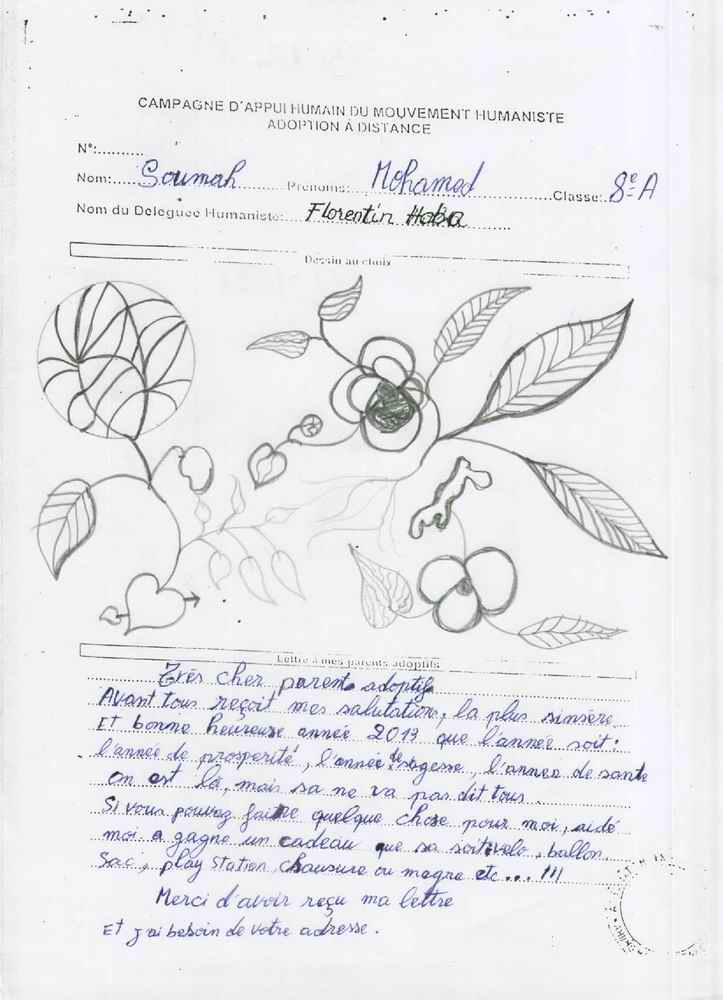 CAMPAGNE D'APPUI HUMAIN DU MOUVEMENT HUMANISTE
ADOPTION À DISTANCE
N°:..........
Nom:.....Soumah.......... Prénoms:....Mohamed..........Classe:..8e A
Nom du Déléguée Humaniste:....Florentin Haba..........
Dessin au choix
Lettre à mes parents adoptifs
Très cher parent adoptifs
Avant tous reçoit mes salutations, la plus sinsère
Et bonne heureuse année 2013 que l'année soit:
l'année de prosperité, l'année de sagesse, l'année de santé
On est là, mais sa ne va pas dit tous.
Si vous pouvez faire quelque chose pour moi, aidé
moi a gagne un cadeau que sa soit velo, ballon,
Sac, play station, chausure ou magra etc... !!!
Merci d'avoir reçu ma lettre
Et j'ai besoin de votre adresse.